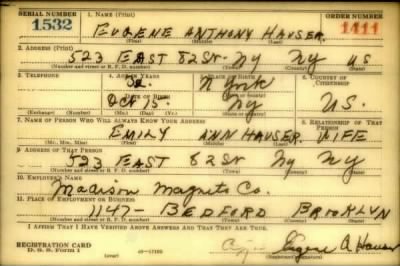 SERIAL NUMBER 1. NAME (Print) ORDER NUMBER
1532 EUGENE ANTHONY HAUSER 1411
(First) (Middle) (Last)
2. ADDRESS (Print)
523 EAST 82 St. NY NY US
(Number and street or R. F. D. number) (Town) (County) (State)
3. TELEPHONE 4. AGE IN YEARS 5. PLACE OF BIRTH 6. COUNTRY OF CITIZENSHIP
N York
DATE OF BIRTH
OCT 75. NY US.
(Exchange) (Number) (Mo.) (Day) (Yr.) (State or country)
7. NAME OF PERSON WHO WILL ALWAYS KNOW YOUR ADDRESS 8. RELATIONSHIP OF THAT PERSON
EMILY ANN HAUSER. WIFE
(Mr., Mrs., Miss) (First) (Middle) (Last)
9. ADDRESS OF THAT PERSON
523 EAST 82 St NY NY
(Number and street or R. F. D. number) (Town) (County) (State)
10. EMPLOYER'S NAME
Madison Magneto Co.
11. PLACE OF EMPLOYMENT OR BUSINESS
1147- BEDFORD BROOKLYN
(Number and street or R. F. D. number) (Town) (County) (State)
I AFFIRM THAT I HAVE VERIFIED ABOVE ANSWERS AND THAT THEY ARE TRUE.
REGISTRATION CARD
D. S. S. Form 1
Eugene A Hauser